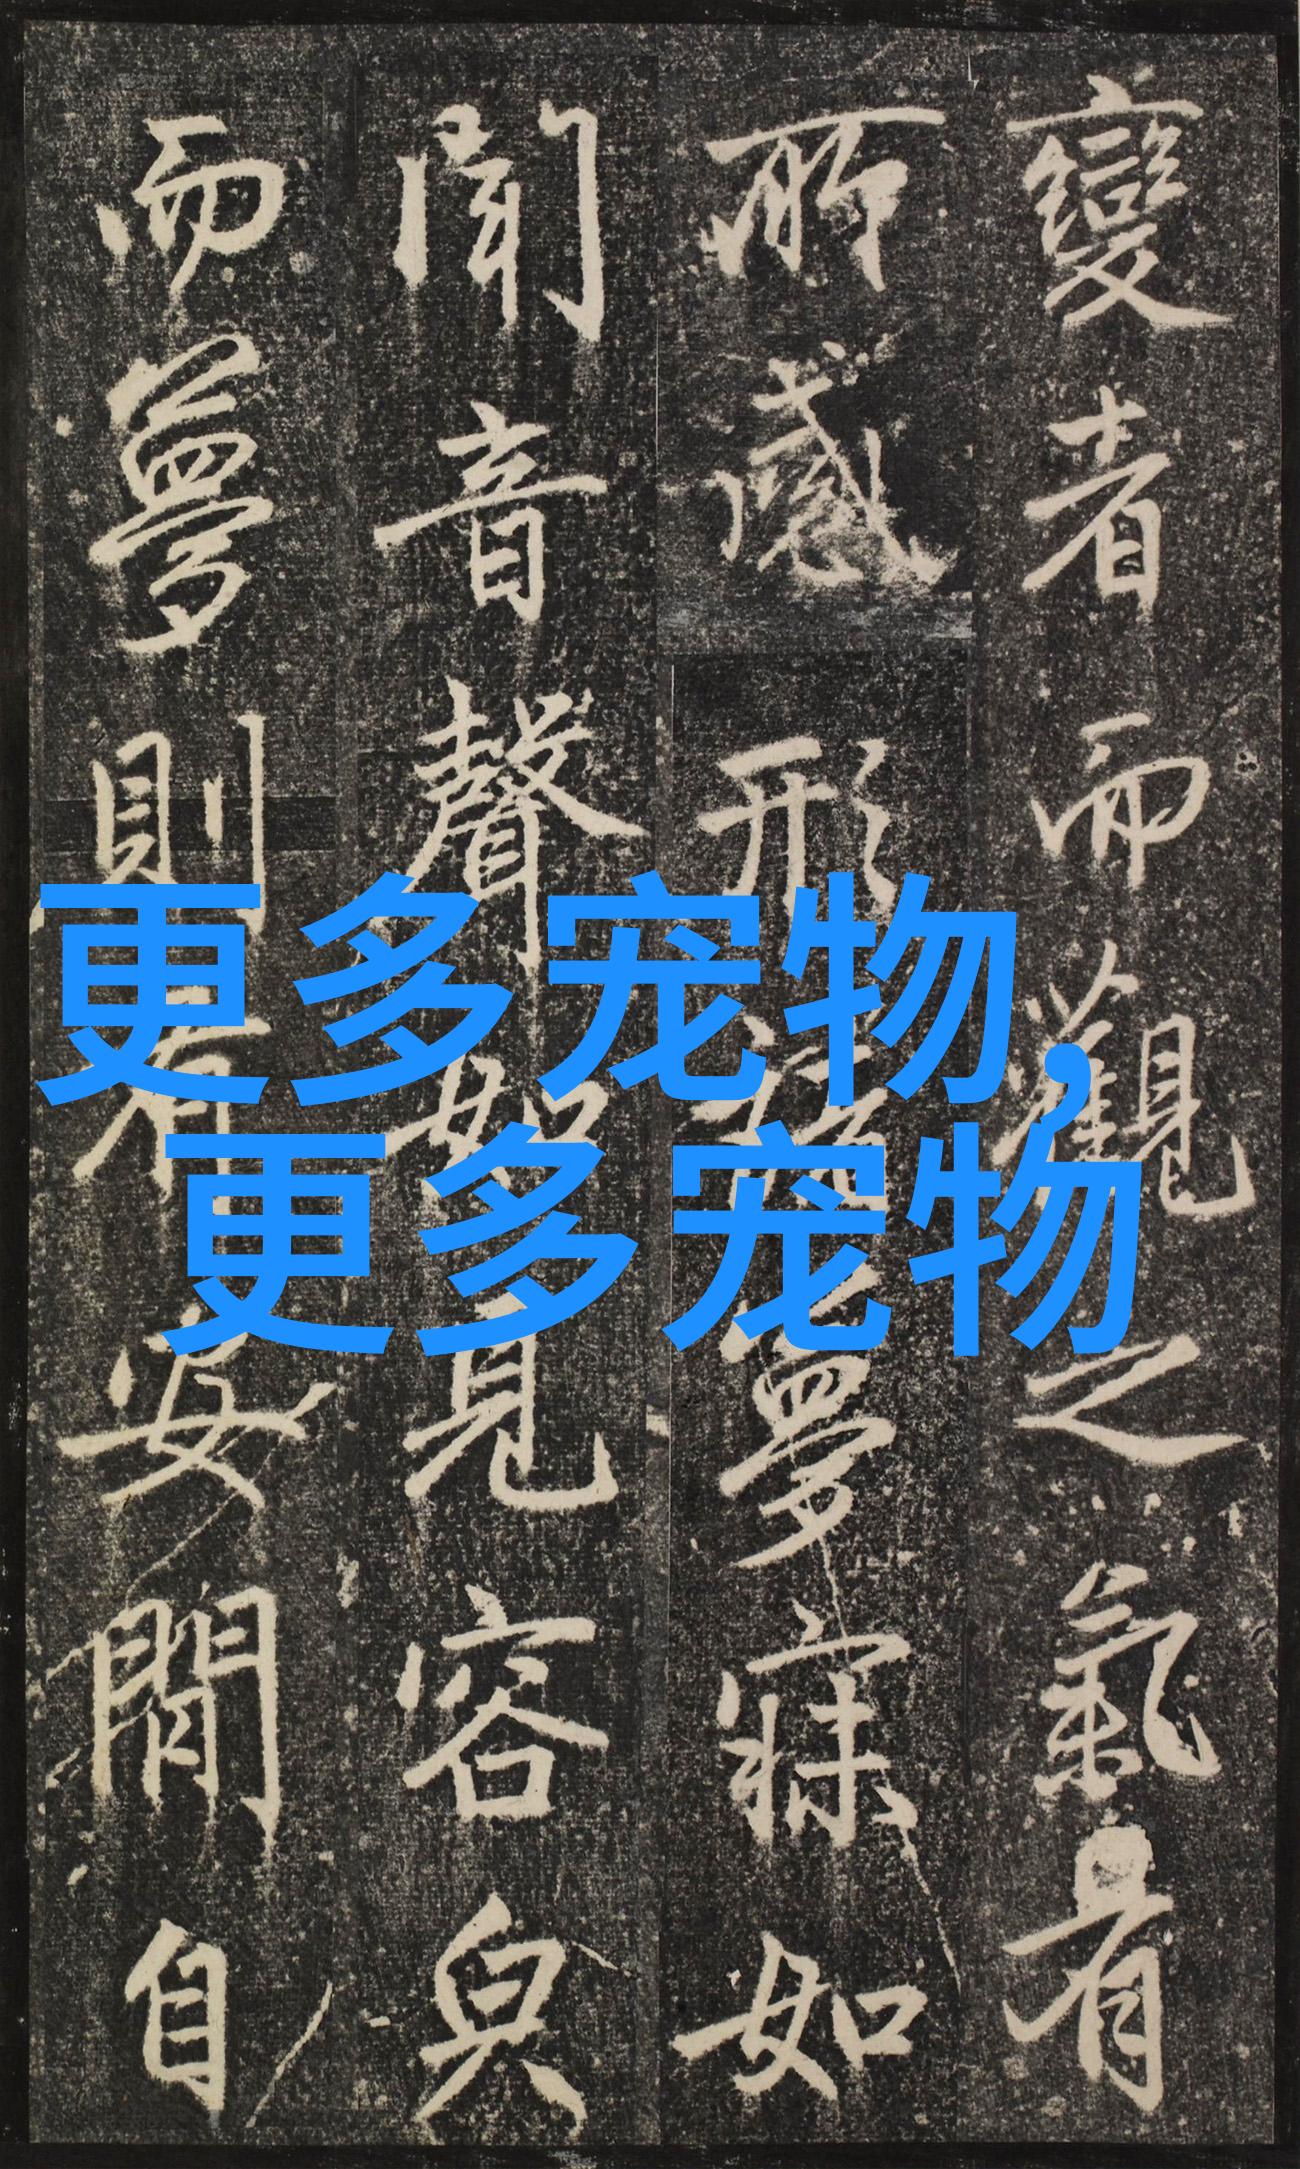 變者而觀之氣有
所感形諸夢寐如
聞音聲如見容皃
而夢則有安閒自
更多宠物,
更多宠物